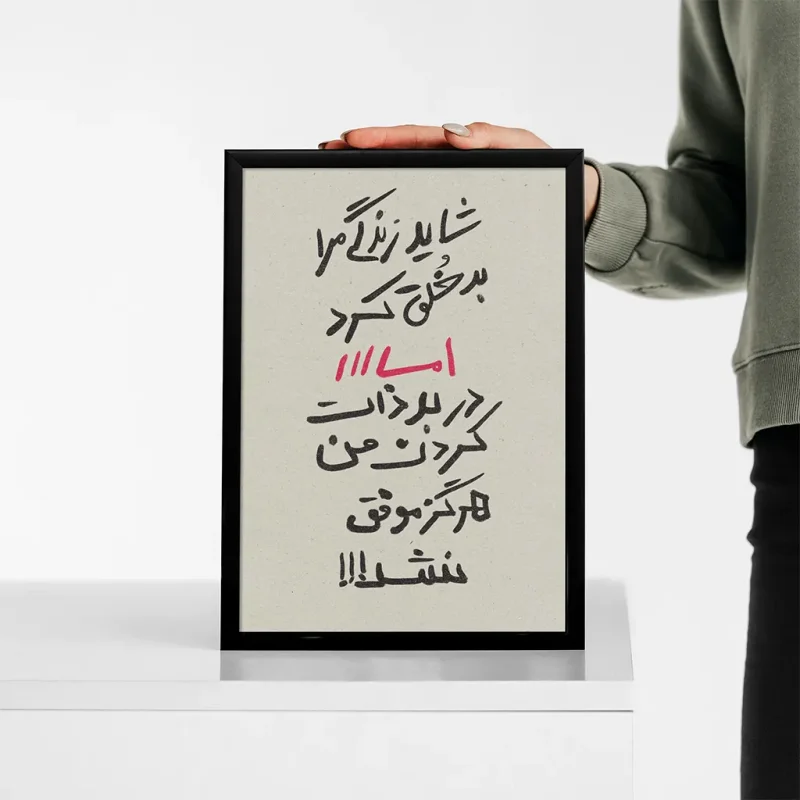 شاید زندگی مرا
بدخُلق کرد
امااااا
در بد ذات
کردن من
هرگز موفق
نشد!!!